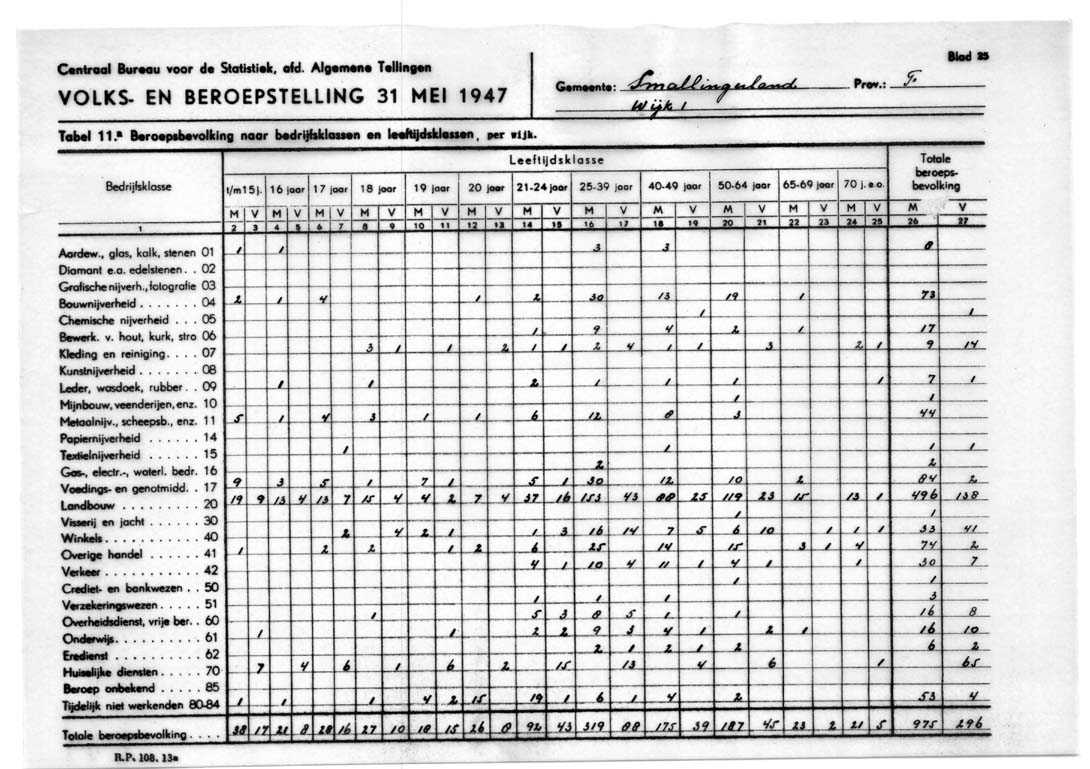 Blad 25
Centraal Bureau voor de Statistiek, afd. Algemene Tellingen
VOLKS- EN BEROEPSTELLING 31 MEI 1947
Gemeente: Smallingerland Prov.: F.
Wijk 1
Tabel 11.a Beroepsbevolking naar bedrijfsklassen en leeftijdsklassen, per wijk.
Bedrijfsklasse Leeftijdsklasse Totale beroeps-bevolking
t/m 15 j. 16 jaar 17 jaar 18 jaar 19 jaar 20 jaar 21-24 jaar 25-39 jaar 40-49 jaar 50-64 jaar 65-69 jaar 70 j. e.o.
M V M V M V M V M V M V M V M V M V M V M V M V M V
1 2 3 4 5 6 7 8 9 10 11 12 13 14 15 16 17 18 19 20 21 22 23 24 25 26 27
Aardew., glas, kalk, stenen 01 1 1 3 3 8
Diamant e.a. edelstenen . . 02
Grafische nijverh., fotografie 03
Bouwnijverheid . . . . . . . 04 2 1 4 1 2 30 13 19 1 73
Chemische nijverheid . . . 05 1 1
Bewerk. v. hout, kurk, stro 06 1 9 4 2 1 17
Kleding en reiniging . . . . 07 3 1 1 2 1 1 2 4 1 1 3 2 1 9 14
Kunstnijverheid . . . . . . . 08
Leder, wasdoek, rubber . . 09 1 1 2 1 1 1 1 7 1
Mijnbouw, veenderijen, enz. 10 1 1
Metaalnijv., scheepsb., enz. 11 5 1 4 3 1 1 6 12 8 3 44
Papiernijverheid . . . . . . 14
Textielnijverheid . . . . . . 15 1 1 1 1
Gas-, electr.-, waterl. bedr. 16 2 2
Voedings- en genotmidd. . . 17 9 3 5 1 7 1 5 1 30 12 10 2 84 2
Landbouw . . . . . . . . . 20 19 9 13 4 13 7 15 4 4 2 7 4 37 16 153 43 88 25 119 23 15 13 1 496 138
Visserij en jacht . . . . . . 30 1 1
Winkels . . . . . . . . . . 40 2 4 2 1 1 3 16 14 7 5 6 10 1 1 1 33 41
Overige handel . . . . . . 41 1 2 2 1 2 6 25 14 15 3 1 4 74 2
Verkeer . . . . . . . . . . 42 4 1 10 4 11 1 4 1 1 30 7
Crediet- en bankwezen . . 50 1 1
Verzekeringswezen . . . . . 51 1 1 1 3
Overheidsdienst, vrije ber. . 60 1 5 3 8 5 1 1 16 8
Onderwijs . . . . . . . . . 61 1 1 2 2 9 3 4 1 2 1 16 10
Eredienst . . . . . . . . . 62 2 1 2 1 2 6 2
Huiselijke diensten . . . . . 70 7 4 6 1 6 2 15 13 4 6 1 65
Beroep onbekend . . . . . 85
Tijdelijk niet werkenden 80-84 1 1 1 4 2 15 19 1 6 1 4 2 53 4
Totale beroepsbevolking . . . . 38 17 21 8 28 16 27 10 18 15 26 8 92 43 319 88 175 39 187 45 23 2 21 5 975 296
R.P. 108. 13a